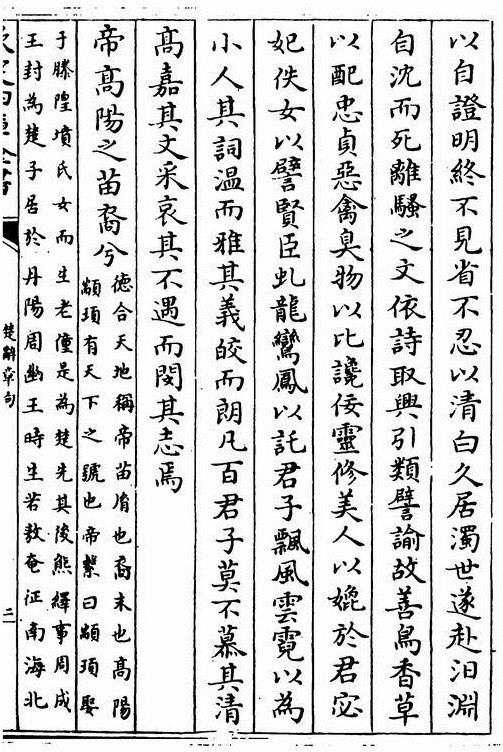 以自證明終不見省不忍以清白久居濁世遂赴汨淵
自沈而死離騷之文依詩取興引類譬諭故善鳥香草
以配忠貞惡禽臭物以比讒佞靈修美人以媲於君宓
妃佚女以譬賢臣虬龍鸞鳳以託君子飄風雲霓以為
小人其詞温而雅其義皎而朗凡百君子莫不慕其清
髙嘉其文采哀其不遇而閔其志焉
帝髙陽之苗裔兮
德合天地稱帝苗胄也裔末也髙陽
顓頊有天下之號也帝繫曰顓頊娶
于滕隍墳氏女而生老僮是為楚先其後熊繹事周成
王封為楚子居於丹陽周幽王時生若敖奄征南海北
楚辭章句
二